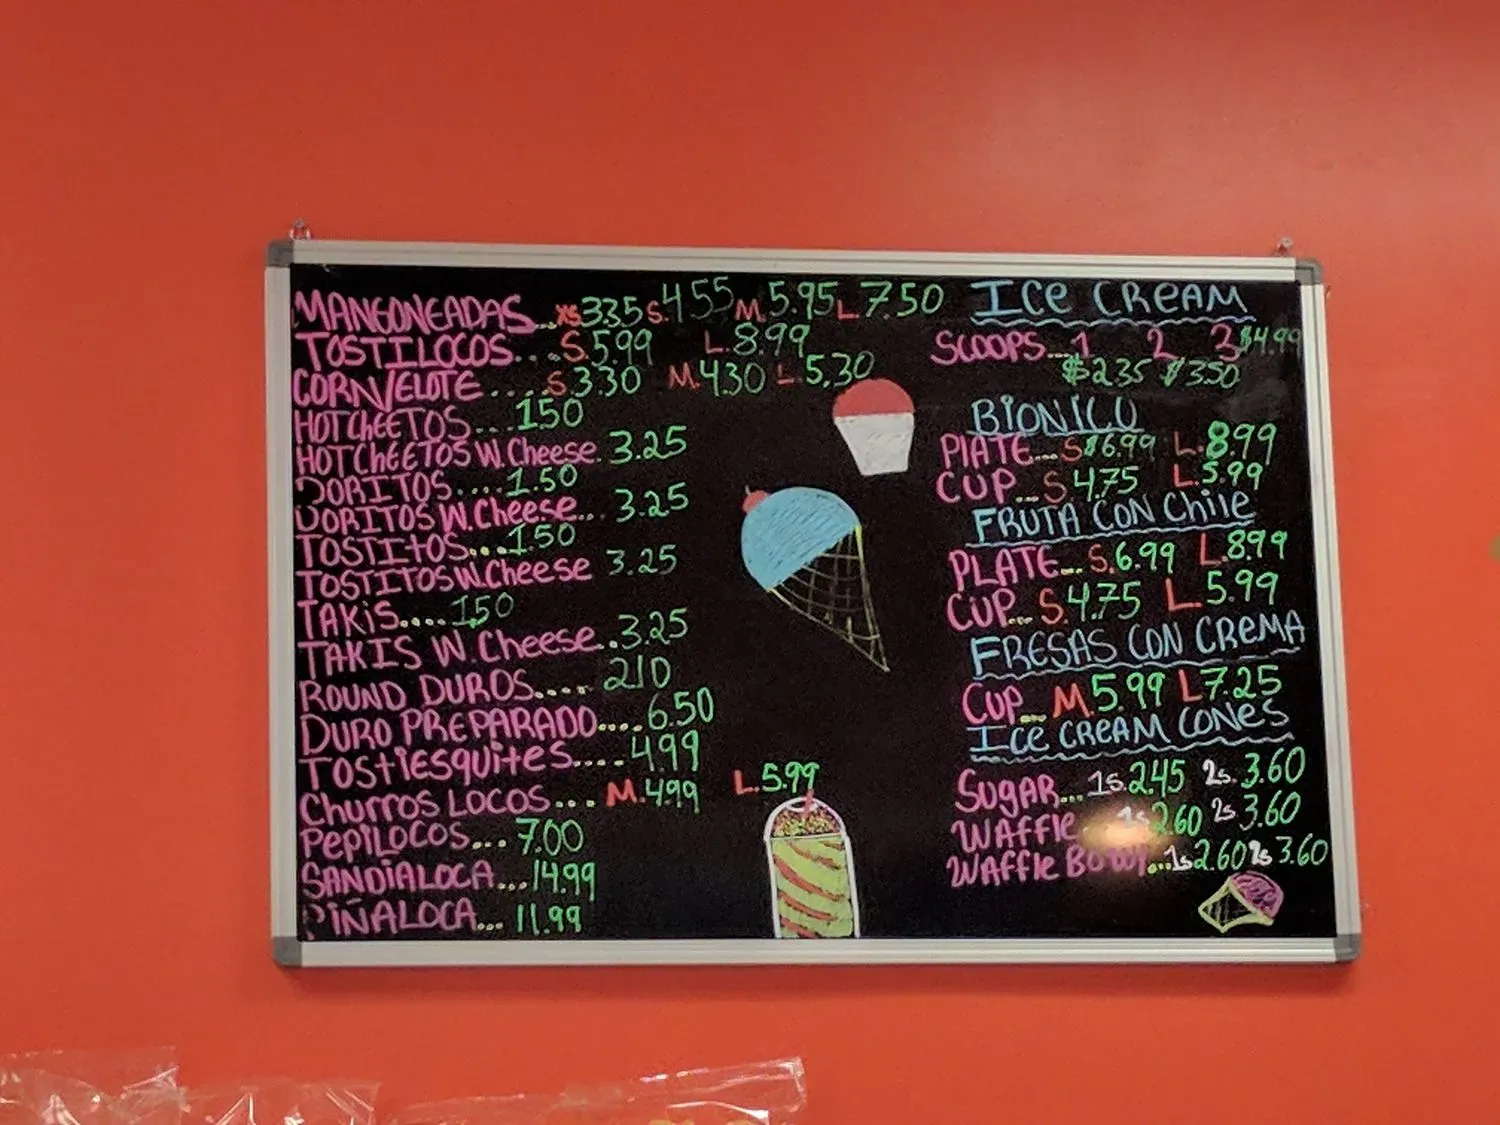 MANGONEADAS... XS 3.35 S. 4.55 M. 5.95 L 7.50
TOSTILOCOS.... S. 5.99 L. 8.99
CORN/ELOTE .....S 3.30 M. 4.30 L 5.30
HOT CHEETOS....1.50
HOT CHEETOS W.Cheese. 3.25
DORITOS....1.50
DORITOS W.Cheese... 3.25
TOSTITOS....1.50
TOSTITOS W.Cheese 3.25
TAKIS....1.50
TAKIS W.Cheese..3.25
ROUND DUROS.... 2.10
DURO PREPARADO....6.50
TOSTIESQUITES....4.99
CHURROS LOCOS.... M. 4.99 L. 5.99
PEPILOCOS... 7.00
SANDIALOCA...14.99
PIÑALOCA... 11.99
ICE CREAM
SCOOPS...1 2 3 $4.99
$2.35 $3.50
BIONICO
PLATE... S $6.99 L. 8.99
CUP... S 4.75 L. 5.99
FRUTA CON Chile
PLATE... S. 6.99 L. 8.99
CUP... S. 4.75 L. 5.99
FRESAS CON CREMA
CUP... M 5.99 L 7.25
ICE CREAM CONES
SUGAR... 1s. 2.45 2s. 3.60
WAFFLE 1s 2.60 2s 3.60
WAFFLE BOWL...1s 2.60 2s 3.60